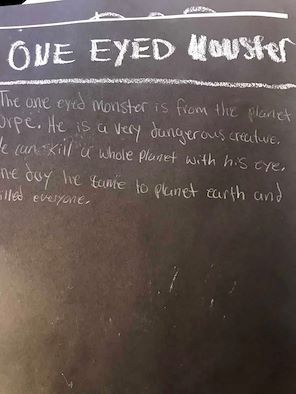 ONE EYED Monster
The one eyed monster is from the planet
He is a very dangerous creature.
He can kill a whole planet with his eye.
One day he came to planet earth and
killed everyone.